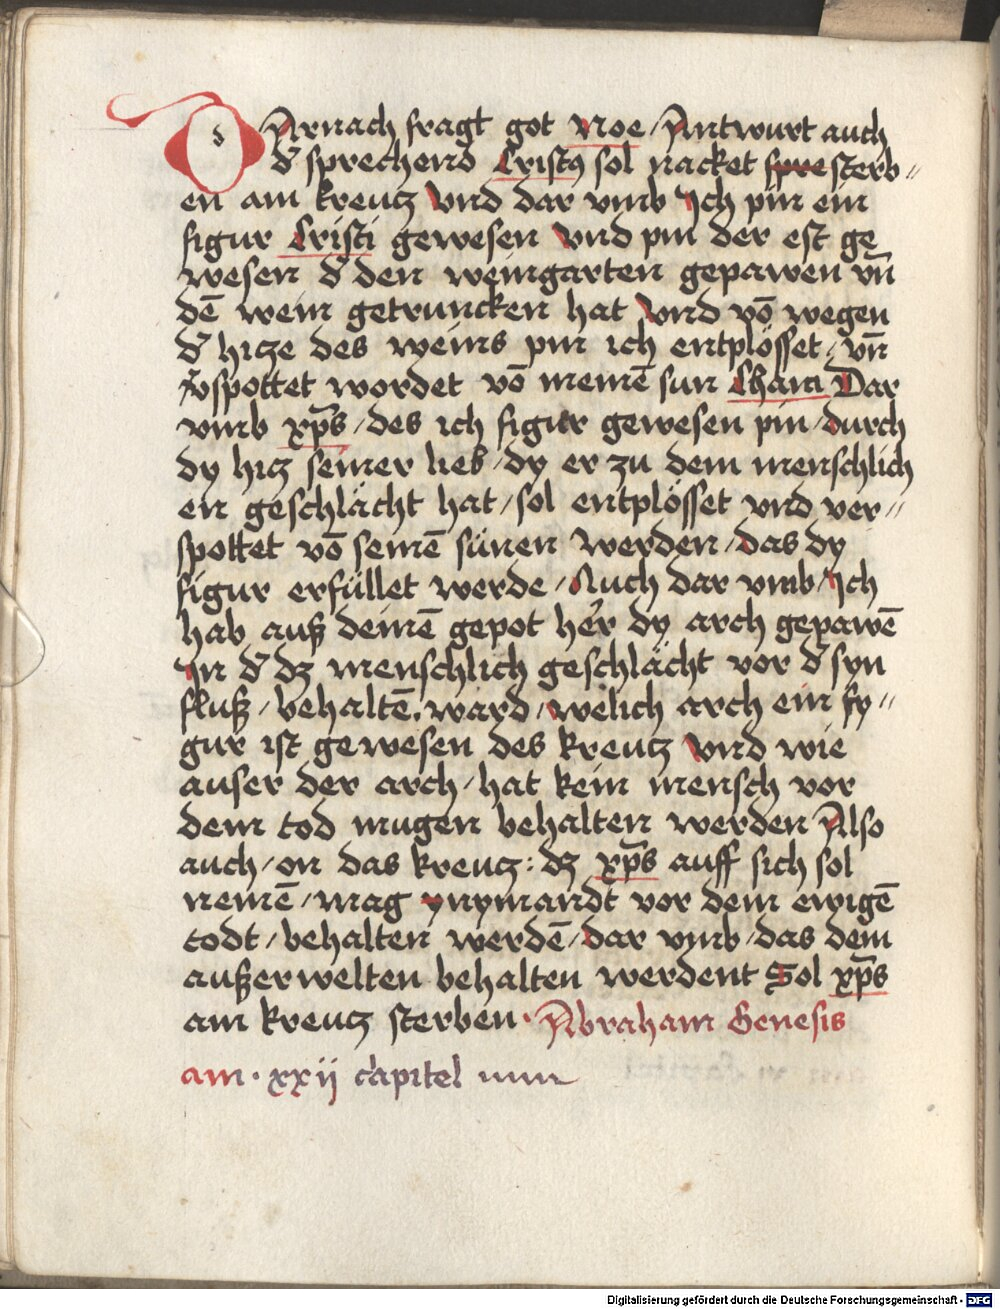 DArnach fragt got Noe / Antwurt auch
d̾ sprechend Cristꝰ sol nacket spre sterb〃
en am kreutz Vnd dar vmb Ich pin ein
figur Cristi gewesen Vnd pin der est ge
wesen d̾ den weingarten gepawen vn̄
dē wein getruncken hat Vnd vō wegen
d̾ hicze des weins pin ich entplösset / vn̄
v̾spottet wordet vō meinē sun Cham Dar
vmb xp̄s / des ich figur gewesen pin / durch
dy hicz seiner lieb / dy er zu dem menschlich
en geschlächt hat / sol entplösset vnd ver〃
spottet vō seinē sünen werden / das dy
figur erfüllet werde / Auch dar vmb / Ich
hab auß deinē gepot her̾ dy arch gepawē
In d̾ dz menschlich geschlächt vor d̾ syn
fluß / behaltē. ward / welich arch ein fy〃
gur ist gewesen des kreutz Vnd wie
auser der arch / hat kein mensch vor
dem tod mugen behalten werden Also
auch / on das kreutz : dz xp̄s auff sich sol
nemē / mag y nymandt vor dem ewigē
todt / behalten werdē / dar vmb / das dem
außerwelten behalten werdent Sol xp̄s
am kreutz sterben · Abraham Genesis
am · xxij capitel
Digitalisierung gefördert durch die Deutsche Forschungsgemeinschaft - DFG